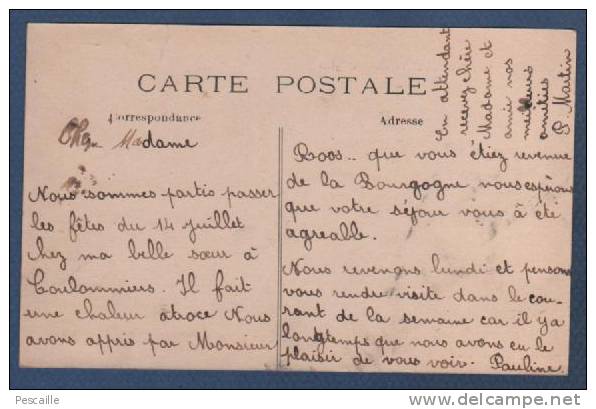 CARTE POSTALE
Correspondance
Adresse
Chère Madame
Nous sommes partis passer
les fêtes du 14 juillet
chez ma belle sœur à
Coulommiers. Il fait
une chaleur atroce Nous
avons appris par Monsieur
Roos.. que vous étiez revenue
de la Bourgogne nous espérons
que votre séjour vous à été
agreable.
Nous revenons lundi et pensons
vous rendre visite dans le cou-
rant de la semaine car il y a
longtemps que nous avons eu le
plaisir de vous voir. Pauline
En attendant
recevez chère
Madame et
amie nos
meilleurs
amitiés
P. Martin
Pescaille
www.delcampe.net